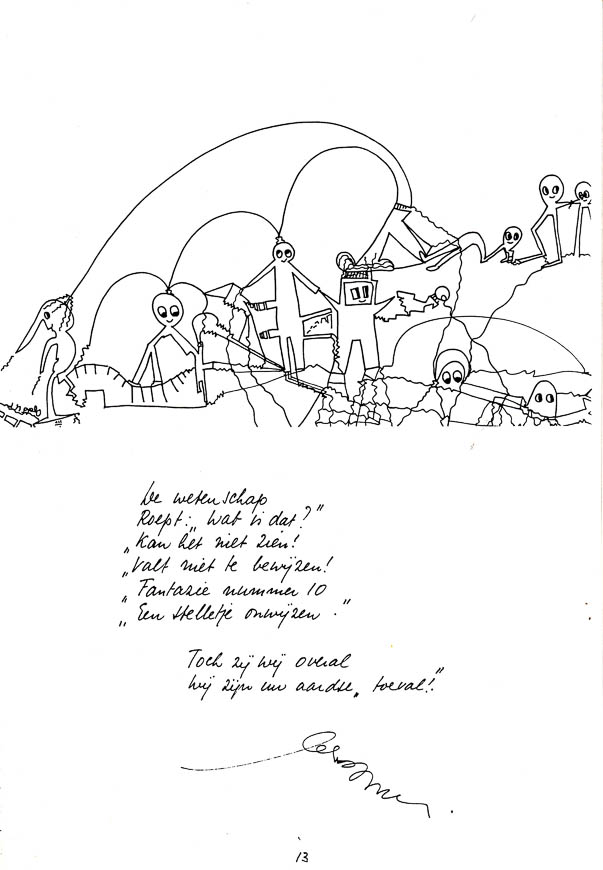 De wetenschap
Roept: „Wat is dat?”
„Kan het niet zien!
„Valt niet te bewijzen!
„Fantazie nummer 10
„Een stelletje onwijzen."
Toch zij wij overal
Wij zijn uw aardse „toeval!”
13